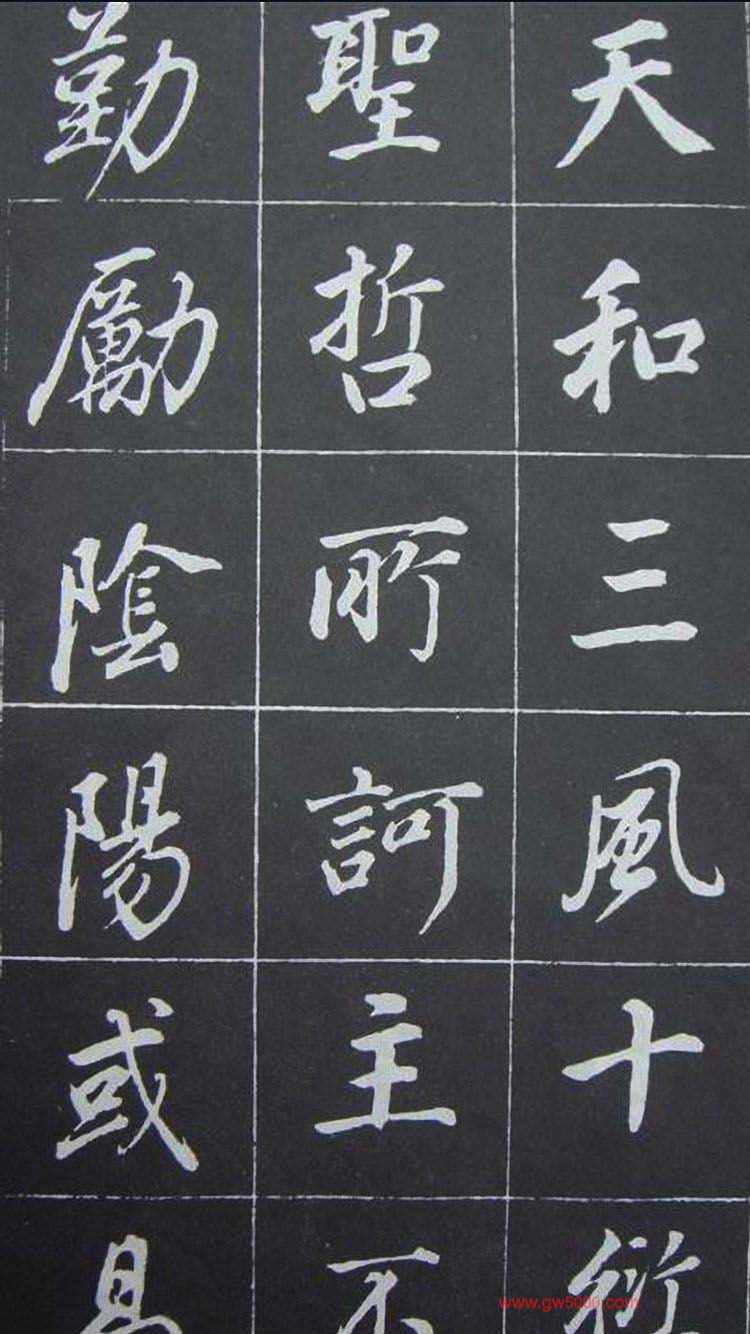 天和三風十愆
聖哲所訶主不
勤勵陰陽或易
www.gw5000.com